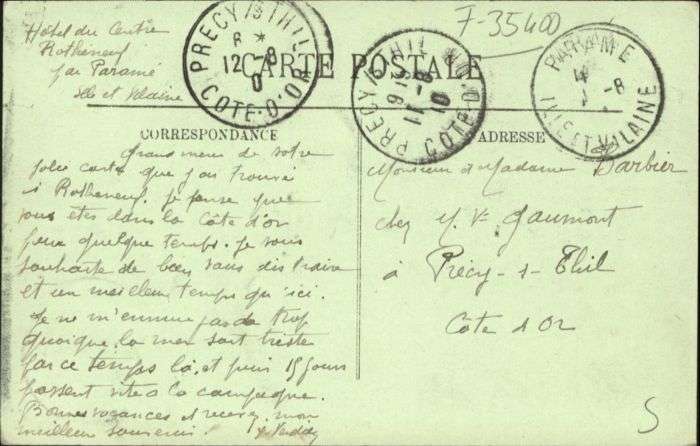 Hôtel du Centre
Rotheneuf
par Paramé
Ille et Vilaine
F-35400
PRECY Is THIL
12 -8
0
COTE-D'OR
PRECY Is THIL
11
10
COTE-D'OR
PARAMÉ
-8
ILLE-ET-VILAINE
CARTE POSTALE
CORRESPONDANCE
ADRESSE
Grand merci de votre
jolie carte que j'ai trouvée
à Rotheneuf. Je pense que
vous êtes dans la Côte d'or
pour quelque temps. Je vous
souhaite de bien vous distraire
et un meilleur temps qu'ici.
Je ne m'ennuie pas de trop
quoique la mer soit triste
par ce temps là, et puis 15 jours
passent vite à la campagne.
Bonnes vacances et recevez mon
meilleur souvenir.
Monsieur et Madame Barbier
chez M. Ve Gaumont
à Précy-s-Thil
Côte d'Or
S